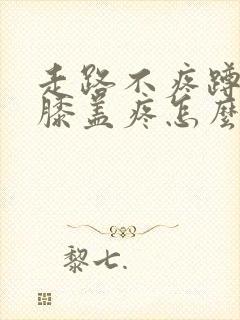 走路不疼蹲
膝盖疼怎麽
黎七.